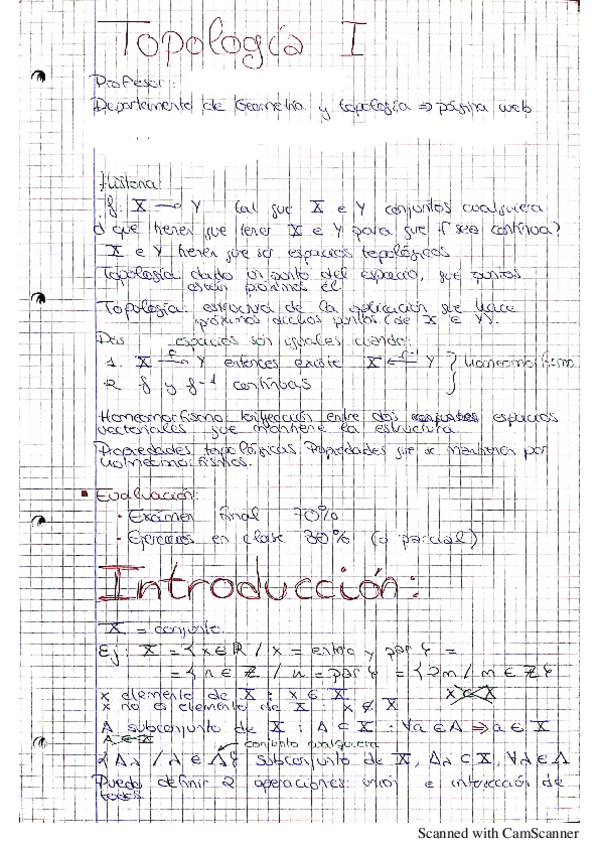 Topología I
Profesor:
Departamento de Geometría y topología ⇒ página web
Historia
f: X → Y tal que X e Y conjuntos cualquiera
¿ que tienen que tener X e Y para que f sea continua?
X e Y tienen que ser espacios topológicos
Topología: dado un punto del espacio, que puntos
están próximos él
Topología: estructura de la aplicación que hace
próximos dichos puntos (de X e Y).
Dos espacios son iguales cuando:
1. X →f Y entonces existe X ←f⁻¹ Y } Homeomorfismo
2 f y f⁻¹ continuas
Homeomorfismo: biyección entre dos conjuntos espacios
vectoriales que mantiene la estructura
Propiedades topológicas: Propiedades que se mantienen por
homeomorfismos.
▪ Evaluación:
- Exámen final 70%
- Ejercicios en clase 30% (o parcial)
Introducción:
X = conjunto
Ej: X = {x ∈ R / x = entero y par} =
= {n ∈ Z / n = par} = {2m / m ∈ Z}
x elemento de X : x ∈ X
x no es elemento de X : x ∉ X
A subconjunto de X : A ⊂ X : ∀a ∈ A ⇒ a ∈ X
conjunto cualquiera
{Aλ / λ ∈ Λ} subconjunto de X, Aλ ⊂ X, ∀λ ∈ Λ
Puedo definir 2 operaciones: unión e intersección de
Scanned with CamScanner